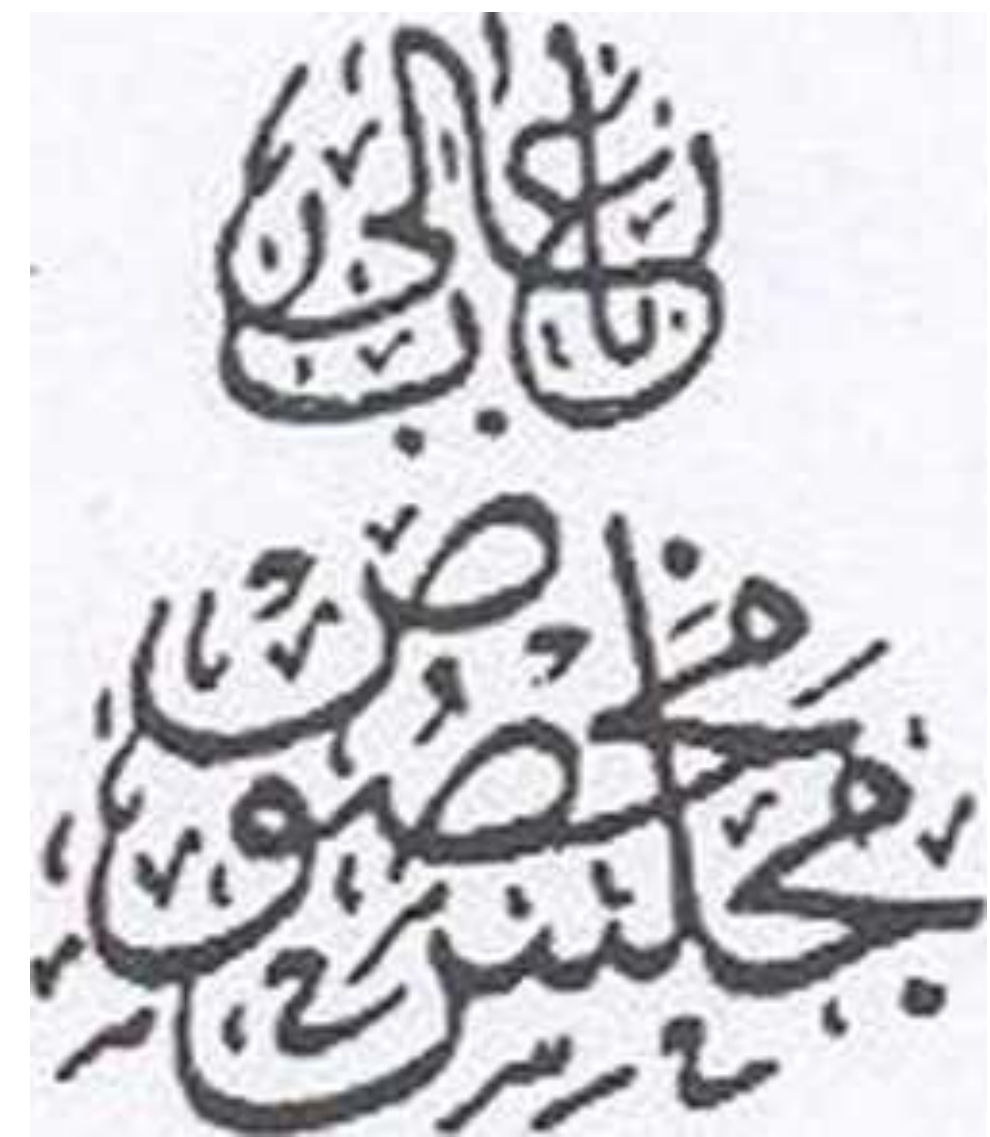 باب عالی
مجلس مخصوص